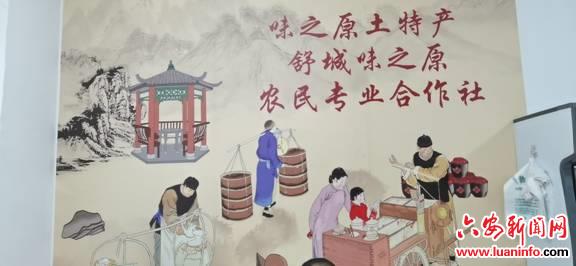 味之原土特产
舒城味之原
农民专业合作社
六安新闻网
www.luaninfo.com